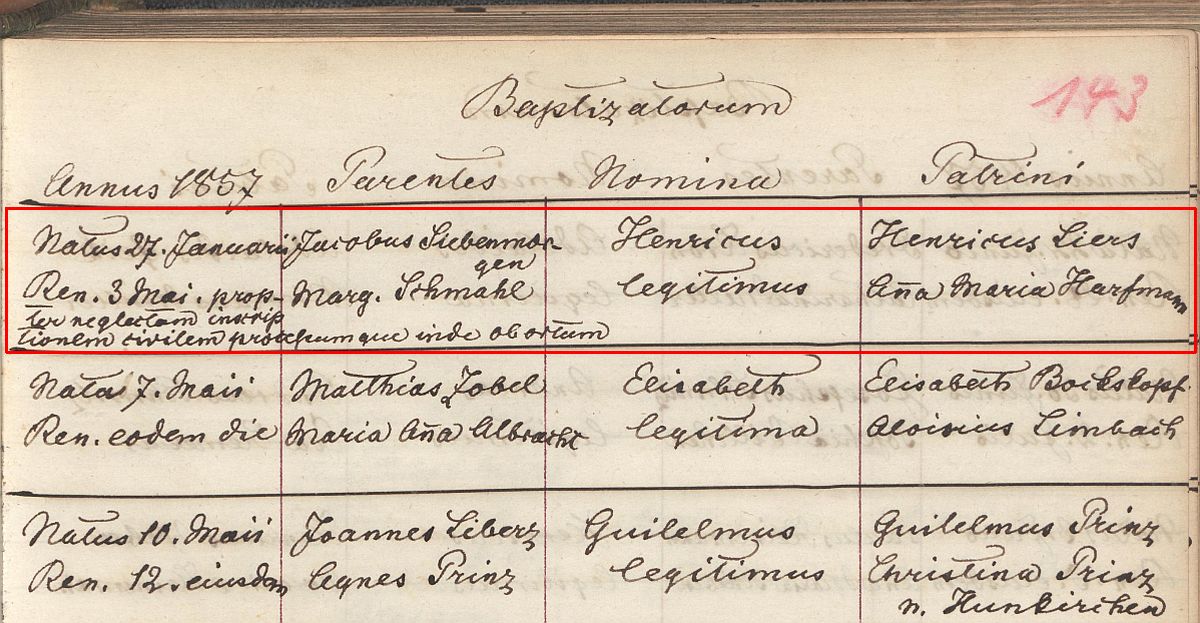 Baptizatorum
143
Annus 1857 Parentes Nomina Patrini
Natus 27. Januarii Jacobus Siebenmor- Henricus Henricus Liers
gen
Ren. 3 Mai. prop- Marg. Schmahl legitimus Aña Maria Harfmann
ter neglectam inscrip
tionem civilem que inde obortum
Nata 7. Maii Matthias Zobel Elisabeth Elisabeth Bockskopf.
Ren. eodem die Maria Aña Albracht legitima Aloisius Limbach
Natus 10. Maii Joannes Liberz Guilelmus Guilelmus Prinz
Ren. 12. eiusdem Agnes Prinz legitimus Christina Prinz
n. Hunkirchen